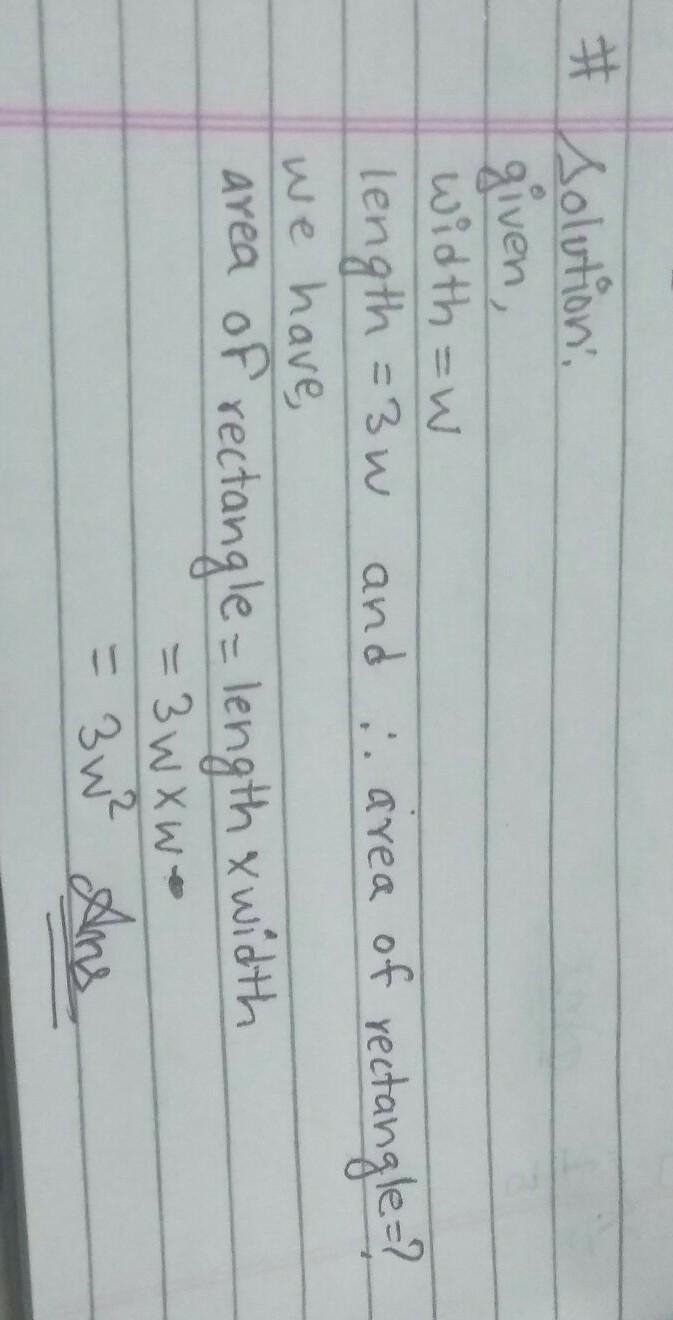 # Solution:
given,
width = w
length = 3w and ∴ area of rectangle = ?
we have,
area of rectangle = length x width
= 3w x w
= 3w² Ans